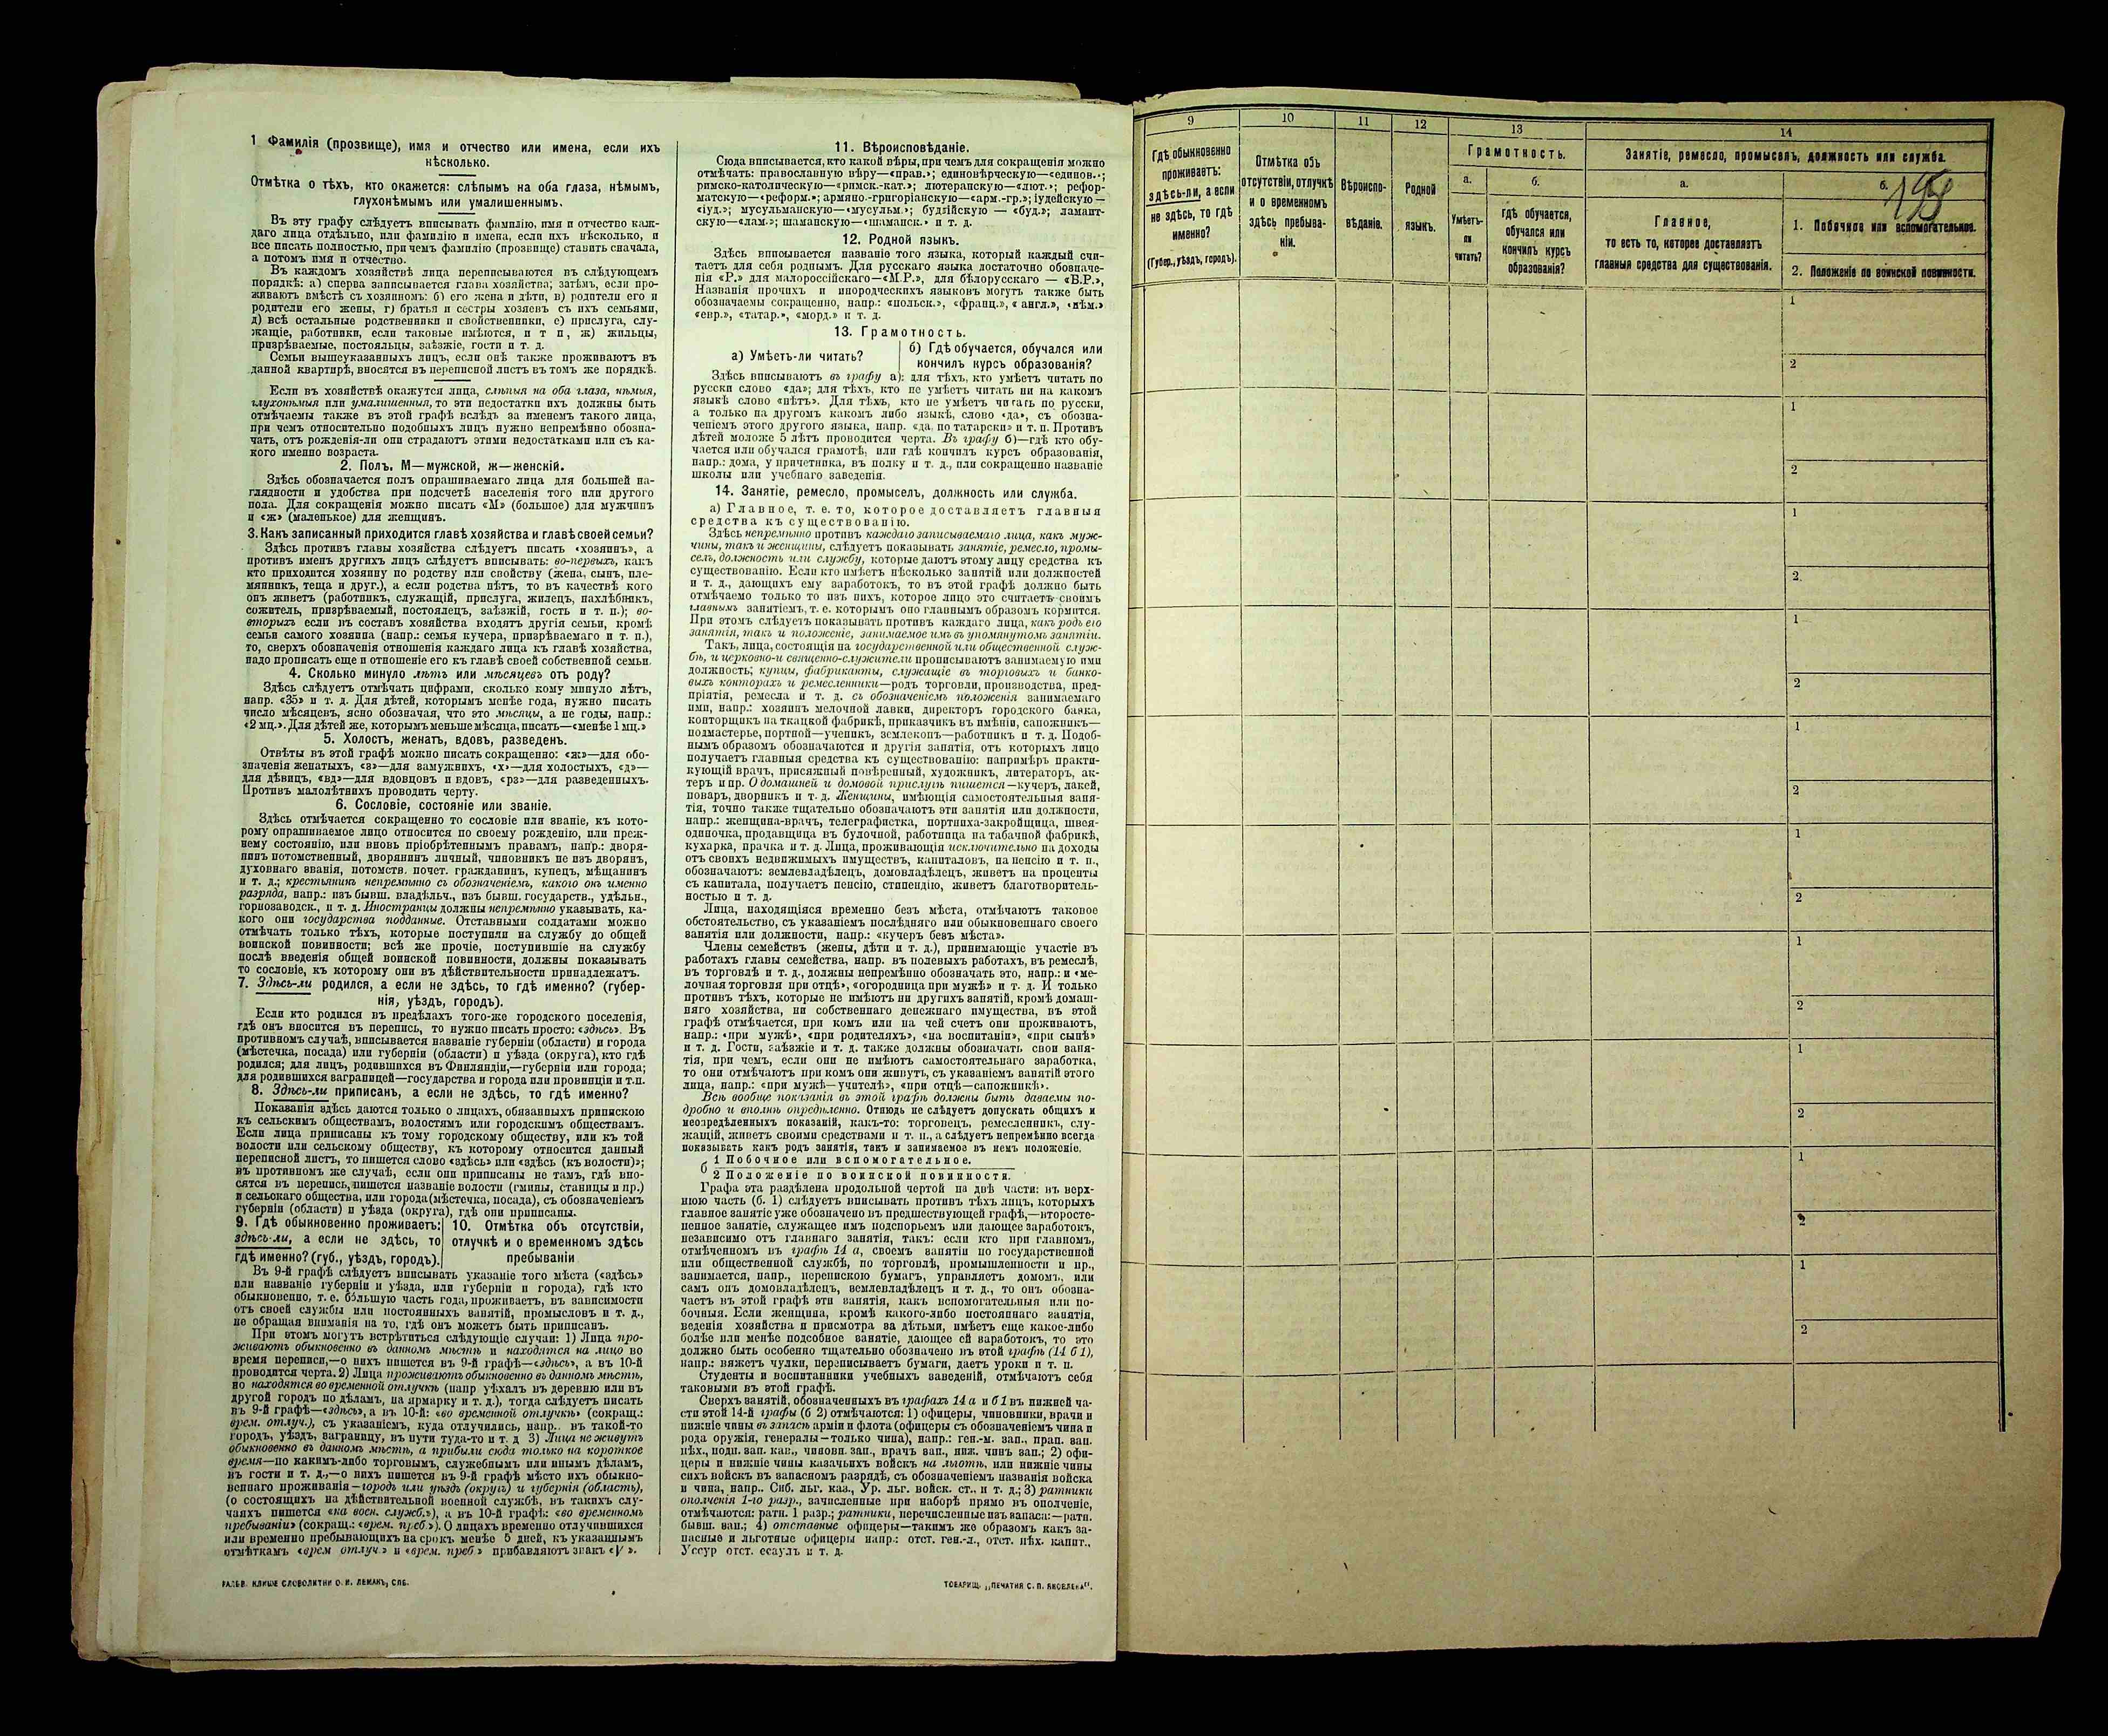 1 Фамилія (прозвище), имя и отчество или имена, если ихъ
нѣсколько.
Отмѣтка о тѣхъ, кто окажется: слѣпымъ на оба глаза, нѣмымъ,
глухонѣмымъ или умалишеннымъ.
Въ эту графу слѣдуетъ вписывать фамилію, имя и отчество каж-
даго лица отдѣльно, или фамилію и имена, если ихъ нѣсколько, и
все писать полностью, при чемъ фамилію (прозвище) ставить сначала,
а потомъ имя и отчество.
Въ каждомъ хозяйствѣ лица переписываются въ слѣдующемъ
порядкѣ: а) сперва записывается глава хозяйства; затѣмъ, если про-
живаютъ вмѣстѣ съ хозяиномъ: б) его жена и дѣти, в) родители его и
родители его жены, г) братья и сестры хозяевъ съ ихъ семьями,
д) всѣ остальные родственники и свойственники, е) прислуга, слу-
жащіе, работники, если таковые имѣются, и т п, ж) жильцы,
призрѣваемые, постояльцы, заѣзжіе, гости и т. д.
Семьи вышеуказанныхъ лицъ, если онѣ также проживаютъ въ
данной квартирѣ, вносятся въ переписной листъ въ томъ же порядкѣ.
Если въ хозяйствѣ окажутся лица, слѣпыя на оба глаза, нѣмыя,
глухонѣмыя или умалишенныя, то эти недостатки ихъ должны быть
отмѣчаемы также въ этой графѣ вслѣдъ за именемъ такого лица,
при чемъ относительно подобныхъ лицъ нужно непремѣнно обозна-
чать, отъ рожденія-ли они страдаютъ этими недостатками или съ ка-
кого именно возраста.
2. Полъ. М—мужской, ж—женскій.
Здѣсь обозначается полъ опрашиваемаго лица для большей на-
глядности и удобства при подсчетѣ населенія того или другого
пола. Для сокращенія можно писать «М» (большое) для мужчинъ
и «ж» (маленькое) для женщинъ.
3. Какъ записанный приходится главѣ хозяйства и главѣ своей семьи?
Здѣсь противъ главы хозяйства слѣдуетъ писать «хозяинъ», а
противъ именъ другихъ лицъ слѣдуетъ вписывать: во-первыхъ, какъ
кто приходится хозяину по родству или свойству (жена, сынъ, пле-
мянникъ, теща и друг.), а если родства нѣтъ, то въ качествѣ кого
онъ живетъ (работникъ, служащій, прислуга, жилецъ, нахлѣбникъ,
сожитель, призрѣваемый, постоялецъ, заѣзжій, гость и т. п.); во-
вторыхъ если въ составъ хозяйства входятъ другія семьи, кромѣ
семьи самого хозяина (напр.: семья кучера, призрѣваемаго и т. п.),
то, сверхъ обозначенія отношенія каждаго лица къ главѣ хозяйства,
надо прописать еще и отношеніе его къ главѣ своей собственной семьи.
4. Сколько минуло лѣтъ или мѣсяцевъ отъ роду?
Здѣсь слѣдуетъ отмѣчать цифрами, сколько кому минуло лѣтъ,
напр. «35» и т. д. Для дѣтей, которымъ менѣе года, нужно писать
число мѣсяцевъ, ясно обозначая, что это мѣсяцы, а не годы, напр.:
«2 мц.». Для дѣтей же, которымъ меньше мѣсяца, писать—«менѣе 1 мц.»
5. Холостъ, женатъ, вдовъ, разведенъ.
Отвѣты въ этой графѣ можно писать сокращенно: «ж»—для обо-
значенія женатыхъ, «з»—для замужнихъ, «х»—для холостыхъ, «д»—
для дѣвицъ, «вд»—для вдовцовъ и вдовъ, «рз»—для разведенныхъ.
Противъ малолѣтнихъ проводить черту.
6. Сословіе, состояніе или званіе.
Здѣсь отмѣчается сокращенно то сословіе или званіе, къ кото-
рому опрашиваемое лицо относится по своему рожденію, или преж-
нему состоянію, или вновь пріобрѣтеннымъ правамъ, напр.: дворя-
нинъ потомственный, дворянинъ личный, чиновникъ не изъ дворянъ,
духовнаго званія, потомств. почет. гражданинъ, купецъ, мѣщанинъ
и т. д.; крестьянинъ непремѣнно съ обозначеніемъ, какого онъ именно
разряда, напр.: изъ бывш. владѣльч., изъ бывш. государств., удѣльн.,
горнозаводск., и т. д. Иностранцы должны непремѣнно указывать, ка-
кого они государства подданные. Отставными солдатами можно
отмѣчать только тѣхъ, которые поступили на службу до общей
воинской повинности; всѣ же прочіе, поступившіе на службу
послѣ введенія общей воинской повинности, должны показывать
то сословіе, къ которому они въ дѣйствительности принадлежатъ.
7. Здѣсь-ли родился, а если не здѣсь, то гдѣ именно? (губер-
нія, уѣздъ, городъ).
Если кто родился въ предѣлахъ того-же городского поселенія,
гдѣ онъ вносится въ перепись, то нужно писать просто: «здѣсь». Въ
противномъ случаѣ, вписывается названіе губерніи (области) и города
(мѣстечка, посада) или губерніи (области) и уѣзда (округа), кто гдѣ
родился; для лицъ, родившихся въ Финляндіи,—губерніи или города;
для родившихся заграницей—государства и города или провинціи и т.п.
8. Здѣсь-ли приписанъ, а если не здѣсь, то гдѣ именно?
Показанія здѣсь даются только о лицахъ, обязанныхъ припискою
къ сельскимъ обществамъ, волостямъ или городскимъ обществамъ.
Если лица приписаны къ тому городскому обществу, или къ той
волости или сельскому обществу, къ которому относится данный
переписной листъ, то пишется слово «здѣсь» или «здѣсь (къ волости)»;
въ противномъ же случаѣ, если они приписаны не тамъ, гдѣ вно-
сятся въ перепись, пишется названіе волости (гмины, станицы и пр.)
и сельскаго общества, или города (мѣстечка, посада), съ обозначеніемъ
губерніи (области) и уѣзда (округа), гдѣ они приписаны.
9. Гдѣ обыкновенно проживаетъ:
здѣсь-ли, а если не здѣсь, то
гдѣ именно? (губ., уѣздъ, городъ).
10. Отмѣтка объ отсутствіи,
отлучкѣ и о временномъ здѣсь
пребываніи
Въ 9-й графѣ слѣдуетъ вписывать указаніе того мѣста («здѣсь»
или названіе губерніи и уѣзда, или губерніи и города), гдѣ кто
обыкновенно, т. е. бо́льшую часть года, проживаетъ, въ зависимости
отъ своей службы или постоянныхъ занятій, промысловъ и т. д.,
не обращая вниманія на то, гдѣ онъ можетъ быть приписанъ.
При этомъ могутъ встрѣтиться слѣдующіе случаи: 1) Лица про-
живаютъ обыкновенно въ данномъ мѣстѣ и находятся на лицо во
время переписи,—о нихъ пишется въ 9-й графѣ—«здѣсь», а въ 10-й
проводится черта. 2) Лица проживаютъ обыкновенно въ данномъ мѣстѣ,
но находятся во временной отлучкѣ (напр уѣхалъ въ деревню или въ
другой городъ по дѣламъ, на ярмарку и т. д.), тогда слѣдуетъ писать
въ 9-й графѣ—«здѣсь», а въ 10-й: «во временной отлучкѣ» (сокращ.:
врем. отлуч.), съ указаніемъ, куда отлучились, напр.. въ такой-то
городъ, уѣздъ, заграницу, въ пути туда-то и т. д 3) Лица не живутъ
обыкновенно въ данномъ мѣстѣ, а прибыли сюда только на короткое
время—по какимъ-либо торговымъ, служебнымъ или инымъ дѣламъ,
въ гости и т. д.,—о нихъ пишется въ 9-й графѣ мѣсто ихъ обыкно-
веннаго проживанія—городъ или уѣздъ (округъ) и губернія (область),
(о состоящихъ на дѣйствительной военной службѣ, въ такихъ слу-
чаяхъ пишется «на воен. служб.»), а въ 10-й графѣ: «во временномъ
пребываніи» (сокращ.: «врем. преб.»). О лицахъ временно отлучившихся
или временно пребывающихъ на срокъ менѣе 5 дней, къ указаннымъ
отмѣткамъ «врем отлуч.» и «врем. преб.» прибавляютъ знакъ «V».
РАЗБВ. КЛИШЕ СЛОВОЛИТНИ О. И. ЛЕМАНЪ, СПБ.
11. Вѣроисповѣданіе.
Сюда вписывается, кто какой вѣры, при чемъ для сокращенія можно
отмѣчать: православную вѣру—«прав.»; единовѣрческую—«единов.»;
римско-католическую—«римск.-кат.»; лютеранскую—«лют.»; рефор-
матскую—«реформ.»; армяно-григоріанскую—«арм.-гр.»; іудейскую—
«іуд.»; мусульманскую—«мусульм.»; буддійскую — «буд.»; ламаит-
скую—«лам.»; шаманскую—«шаманск.» и т. д.
12. Родной языкъ.
Здѣсь вписывается названіе того языка, который каждый счи-
таетъ для себя роднымъ. Для русскаго языка достаточно обозначе-
нія «Р.» для малороссійскаго—«М.Р.», для бѣлорусскаго — «Б.Р.»,
Названія прочихъ и инородческихъ языковъ могутъ также быть
обозначаемы сокращенно, напр.: «польск.», «франц.», «англ.», «нѣм.»
«евр.», «татар.», «морд.» и т. д.
13. Грамотность.
а) Умѣетъ-ли читать?
б) Гдѣ обучается, обучался или
кончилъ курсъ образованія?
Здѣсь вписываютъ въ графу а): для тѣхъ, кто умѣетъ читать по
русски слово «да»; для тѣхъ, кто не умѣетъ читать ни на какомъ
языкѣ слово «нѣтъ». Для тѣхъ, кто не умѣетъ читать по русски,
а только на другомъ какомъ либо языкѣ, слово «да», съ обозна-
ченіемъ этого другого языка, напр. «да, по татарски» и т. п. Противъ
дѣтей моложе 5 лѣтъ проводится черта. Въ графу б)—гдѣ кто обу-
чается или обучался грамотѣ, или гдѣ кончилъ курсъ образованія,
напр.: дома, у причетника, въ полку и т. д., или сокращенно названіе
школы или учебнаго заведенія.
14. Занятіе, ремесло, промыселъ, должность или служба.
а) Главное, т. е. то, которое доставляетъ главныя
средства къ существованію.
Здѣсь непремѣнно противъ каждаго записываемаго лица, какъ муж-
чины, такъ и женщины, слѣдуетъ показывать занятіе, ремесло, промы-
селъ, должность или службу, которые даютъ этому лицу средства къ
существованію. Если кто имѣетъ нѣсколько занятій или должностей
и т. д., дающихъ ему заработокъ, то въ этой графѣ должно быть
отмѣчаемо только то изъ нихъ, которое лицо это считаетъ своимъ
главнымъ занятіемъ, т. е. которымъ оно главнымъ образомъ кормится.
При этомъ слѣдуетъ показывать противъ каждаго лица, какъ родъ его
занятія, такъ и положеніе, занимаемое имъ въ упомянутомъ занятіи.
Такъ, лица, состоящія на государственной или общественной служ-
бѣ, и церковно-и священно-служители прописываютъ занимаемую ими
должность; купцы, фабриканты, служащіе въ торговыхъ и банко-
выхъ конторахъ и ремесленники—родъ торговли, производства, пред-
пріятія, ремесла и т. д. съ обозначеніемъ положенія занимаемаго
ими, напр.: хозяинъ мелочной лавки, директоръ городского банка,
конторщикъ на ткацкой фабрикѣ, приказчикъ въ имѣніи, сапожникъ—
подмастерье, портной—ученикъ, землекопъ—работникъ и т. д. Подоб-
нымъ образомъ обозначаются и другія занятія, отъ которыхъ лицо
получаетъ главныя средства къ существованію: напримѣръ практи-
кующій врачъ, присяжный повѣренный, художникъ, литераторъ, ак-
теръ и пр. О домашней и домовой прислугѣ пишется—кучеръ, лакей,
поваръ, дворникъ и т. д. Женщины, имѣющія самостоятельныя заня-
тія, точно также тщательно обозначаютъ эти занятія или должности,
напр.: женщина-врачъ, телеграфистка, портниха-закройщица, швея-
одиночка, продавщица въ булочной, работница на табачной фабрикѣ,
кухарка, прачка и т. д. Лица, проживающія исключительно на доходы
отъ своихъ недвижимыхъ имуществъ, капиталовъ, на пенсію и т. п.,
обозначаютъ: землевладѣлецъ, домовладѣлецъ, живетъ на проценты
съ капитала, получаетъ пенсію, стипендію, живетъ благотворитель-
ностью и т. д.
Лица, находящіяся временно безъ мѣста, отмѣчаютъ таковое
обстоятельство, съ указаніемъ послѣдняго или обыкновеннаго своего
занятія или должности, напр.: «кучеръ безъ мѣста».
Члены семействъ (жены, дѣти и т. д.), принимающіе участіе въ
работахъ главы семейства, напр. въ полевыхъ работахъ, въ ремеслѣ,
въ торговлѣ и т. д., должны непремѣнно обозначать это, напр.: и «ме-
лочная торговля при отцѣ», «огородница при мужѣ» и т. д. И только
противъ тѣхъ, которые не имѣютъ ни другихъ занятій, кромѣ домаш-
няго хозяйства, ни собственнаго денежнаго имущества, въ этой
графѣ отмѣчается, при комъ или на чей счетъ они проживаютъ,
напр.: «при мужѣ», «при родителяхъ», «на воспитаніи», «при сынѣ»
и т. д. Гости, заѣзжіе и т. д. также должны обозначать свои заня-
тія, при чемъ, если они не имѣютъ самостоятельнаго заработка,
то они отмѣчаютъ при комъ они живутъ, съ указаніемъ занятій этого
лица, напр.: «при мужѣ—учителѣ», «при отцѣ—сапожникѣ».
Всѣ вообще показанія въ этой графѣ должны быть даваемы по-
дробно и вполнѣ опредѣленно. Отнюдь не слѣдуетъ допускать общихъ и
неопредѣленныхъ показаній, какъ-то: торговецъ, ремесленникъ, слу-
жащій, живетъ своими средствами и т. п., а слѣдуетъ непремѣнно всегда
показывать какъ родъ занятія, такъ и занимаемое въ немъ положеніе.
б 1 Побочное или вспомогательное.
2 Положеніе по воинской повинности.
Графа эта раздѣлена продольной чертой на двѣ части: въ верх-
нюю часть (б. 1) слѣдуетъ вписывать противъ тѣхъ лицъ, которыхъ
главное занятіе уже обозначено въ предшествующей графѣ,—второсте-
пенное занятіе, служащее имъ подспорьемъ или дающее заработокъ,
независимо отъ главнаго занятія, такъ: если кто при главномъ,
отмѣченномъ въ графѣ 14 а, своемъ занятіи по государственной
или общественной службѣ, по торговлѣ, промышленности и пр.,
занимается, напр., перепискою бумагъ, управляетъ домомъ, или
самъ онъ домовладѣлецъ, землевладѣлецъ и т. д., то онъ обозна-
чаетъ въ этой графѣ эти занятія, какъ вспомогательныя или по-
бочныя. Если женщина, кромѣ какого-либо постояннаго занятія,
веденія хозяйства и присмотра за дѣтьми, имѣетъ еще какое-либо
болѣе или менѣе подсобное занятіе, дающее ей заработокъ, то это
должно быть особенно тщательно обозначено въ этой графѣ (14 б 1),
напр.: вяжетъ чулки, переписываетъ бумаги, даетъ уроки и т. п.
Студенты и воспитанники учебныхъ заведеній, отмѣчаютъ себя
таковыми въ этой графѣ.
Сверхъ занятій, обозначенныхъ въ графахъ 14 а и б 1 въ нижней ча-
сти этой 14-й графы (б 2) отмѣчаются: 1) офицеры, чиновники, врачи и
нижніе чины въ запасѣ арміи и флота (офицеры съ обозначеніемъ чина и
рода оружія, генералы—только чина), напр.: ген-м. зап., прап. зап.
пѣх., подп. зап. кав., чиновн. зап., врачъ зап., ниж. чинъ зап.; 2) офи-
церы и нижніе чины казачьихъ войскъ на льготѣ, или нижніе чины
сихъ войскъ въ запасномъ разрядѣ, съ обозначеніемъ названія войска
и чина, напр.. Сиб. льг. каз., Ур. льг. войск. ст., и т. д.; 3) ратники
ополченія 1-го разр., зачисленные при наборѣ прямо въ ополченіе,
отмѣчаются: ратн. 1 разр.; ратники, перечисленные изъ запаса:—ратн.
бывш. зап.; 4) отставные офицеры—такимъ же образомъ какъ за-
пасные и льготные офицеры напр.: отст. ген.-л., отст. пѣх. капит.,
Уссур отст. есаулъ и т. д.
ТОВАРИЩ. „ПЕЧАТНЯ С. П. ЯКОВЛЕВА“.
9
10
11
12
13
14
Гдѣ обыкновенно
проживаетъ:
здѣсь-ли, а если
не здѣсь, то гдѣ
именно?
(Губер., уѣздъ, городъ).
Отмѣтка объ
отсутствіи, отлучкѣ
и о временномъ
здѣсь пребыва-
ніи.
Вѣроиспо-
вѣданіе.
Родной
языкъ.
Грамотность.
а.
Умѣетъ-
ли
читать?
б.
Гдѣ обучается,
обучался или
кончилъ курсъ
образованія?
Занятіе, ремесло, промыселъ, должность или служба.
а.
Главное,
то есть то, которое доставляетъ
главныя средства для существованія.
б.
1. Побочное или вспомогательное.
2. Положеніе по воинской повинности.
1
2
1
2
1
2
1
2
1
2
1
2
1
2
1
2
1
2
1
2